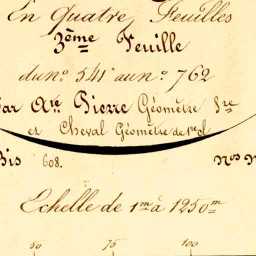 En Quatre Feuilles
3ème Feuille
du nº 541 au nº 762
Par Ate Pierre Géomètre 1re
et Cheval Géomètre de 1re cl
Bis 608.
Echelle de 1m à 1250m
50 75 100